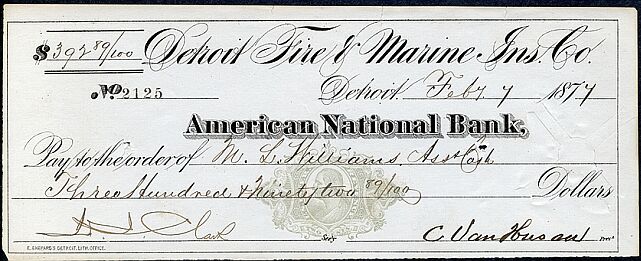 $392 89/100 Detroit Fire & Marine Ins. Co.
No. 2125 Detroit, Feby 7 1877
American National Bank,
Pay to the order of M. L. Williams, Asst Cash
Three Hundred & Ninety two 89/100 Dollars
Clark Secy. C. Van Husan Prest
E. SHEPARD'S DETROIT. LITH. OFFICE.